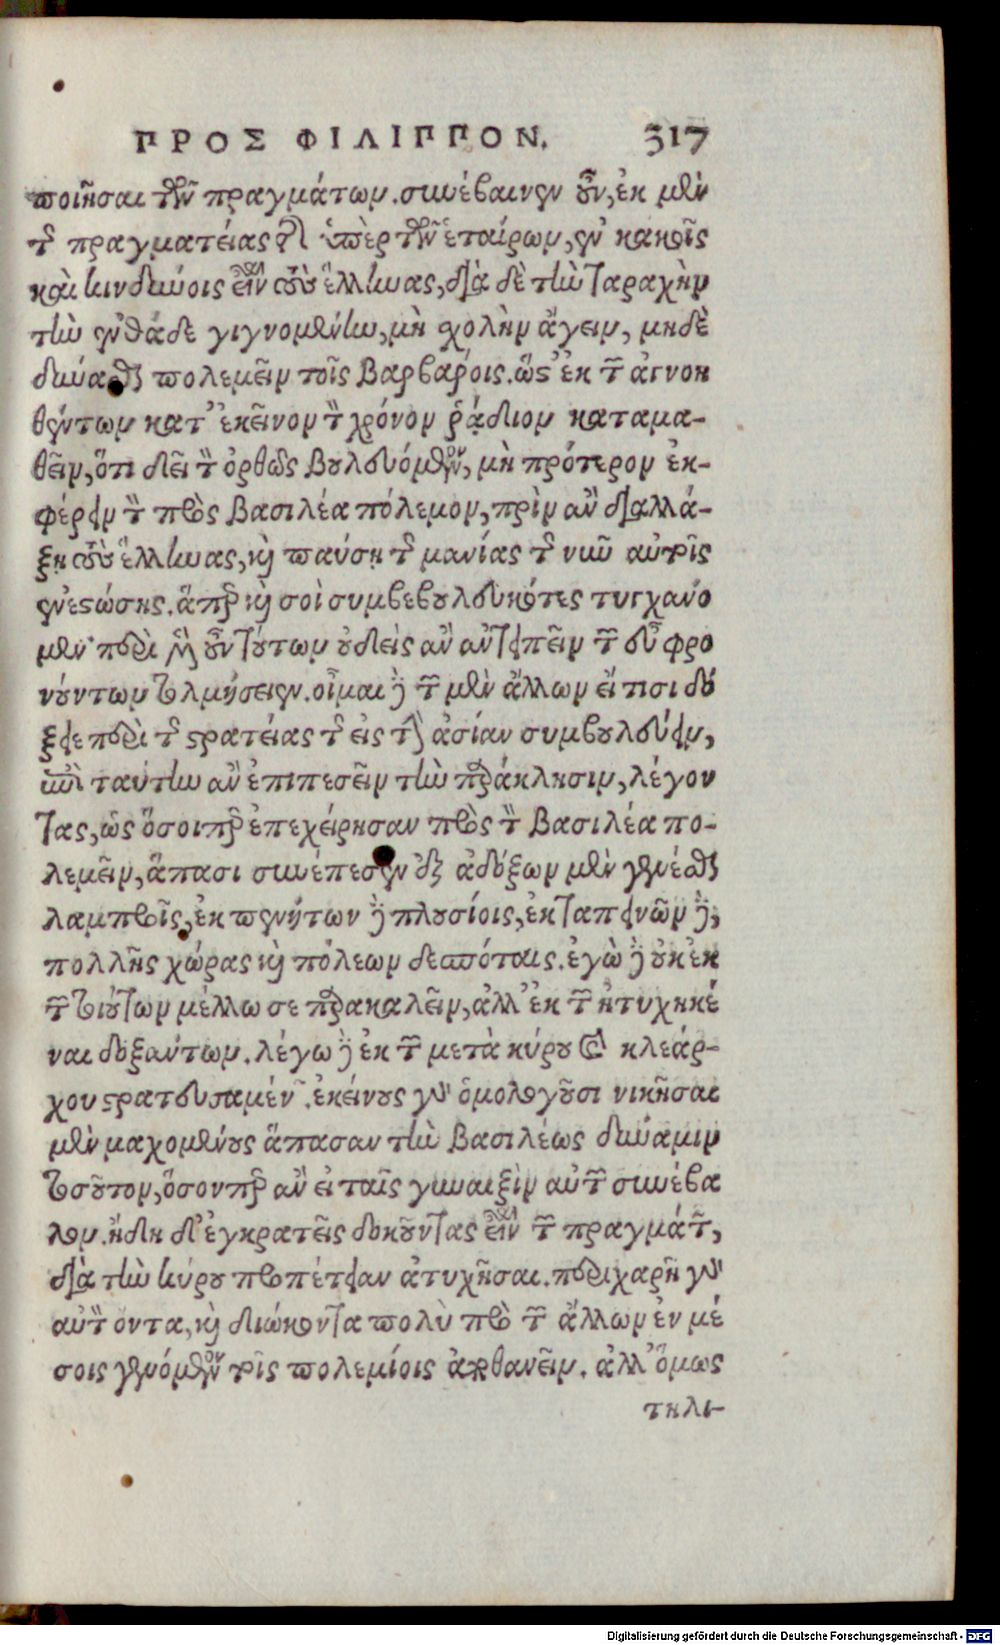 ΠΡΟΣ ΦΙΛΙΠΠΟΝ. 317
ποιῆσαι τῶν πραγμάτων. συνέβαινεν οὖν, ἐκ μὲν
τῆς πραγματείας τῆς ὑπὲρ τῶν ἑταίρων, ἐν κακοῖς
καὶ κινδύνοις εἶναι τοὺς ἕλληνας, διὰ δὲ τὴν ταραχὴν
τὴν ἐνθάδε γιγνομένην, μὴ σχολὴν ἄγειν, μηδὲ
δύνασθαι πολεμεῖν τοῖς βαρβάροις. ὥστ' ἐκ τῶν ἀγνοη
θέντων κατ' ἐκεῖνον τὸν χρόνον ῥᾴδιον καταμα-
θεῖν, ὅτι δεῖ τὸν ὀρθῶς βουλευόμενον, μὴ πρότερον ἐκ-
φέρειν τὸν πρὸς βασιλέα πόλεμον, πρὶν ἂν διαλλά-
ξῃ τοὺς ἕλληνας, καὶ παύσῃ τῆς μανίας τῆς νῦν αὐτοῖς
ἐνεστώσης. ἅπερ καὶ σοὶ συμβεβουλευκότες τυγχάνο
μεν· περὶ μὲν οὖν τούτων οὐδεὶς ἂν ἀντειπεῖν τῶν εὖ φρο
νούντων τολμήσειεν. οἶμαι δὲ τῶν μὲν ἄλλων εἴ τισι δό
ξειε περὶ τῆς στρατείας τῆς εἰς τὴν ἀσίαν συμβουλεύειν,
ἐπὶ ταύτην ἂν ἐπιπεσεῖν τὴν παράκλησιν, λέγον
τας, ὡς ὅσοιπερ ἐπεχείρησαν πρὸς τὸν βασιλέα πο-
λεμεῖν, ἅπασι συνέπεσεν ἐξ ἀδόξων μὲν γενέσθαι
λαμπροῖς, ἐκ πενήτων δὲ πλουσίοις, ἐκ ταπεινῶν δὲ,
πολλῆς χώρας καὶ πόλεων δεσπόταις. ἐγὼ δὲ οὐκ ἐκ
τῶν τοιούτων μέλλω σε παρακαλεῖν, ἀλλ' ἐκ τῶν ἠτυχηκέ
ναι δοξάντων. λέγω δὲ ἐκ τῶν μετὰ κύρου καὶ κλεάρ-
χου στρατευσαμένων. ἐκείνους γὰρ ὁμολογοῦσι νικῆσαι
μὲν μαχομένους ἅπασαν τὴν βασιλέως δύναμιν
τοσοῦτον, ὅσονπερ ἂν εἰ ταῖς γυναιξὶν αὐτῶν συνέβα
λον. ἤδη δ' ἐγκρατεῖς δοκοῦντας εἶναι τῶν πραγμάτων,
διὰ τὴν κύρου προπέτειαν ἀτυχῆσαι. περιχαρῆ γὰρ
αὐτὸν ὄντα, καὶ διώκοντα πολὺ πρὸ τῶν ἄλλων ἐν μέ
σοις γενόμενον τοῖς πολεμίοις ἀποθανεῖν. ἀλλ' ὅμως
τηλι-
Digitalisierung gefördert durch die Deutsche Forschungsgemeinschaft - DFG